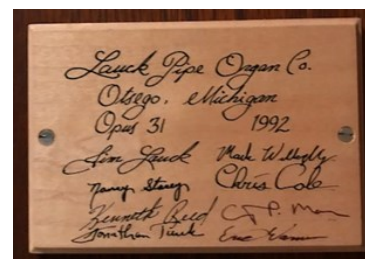 Lauck Pipe Organ Co.
Otsego, Michigan
Opus 31 1992
Jim Lauck Mark
Nancy Chris Cole
Kenneth Reed
Jonathan Tuuk Eric